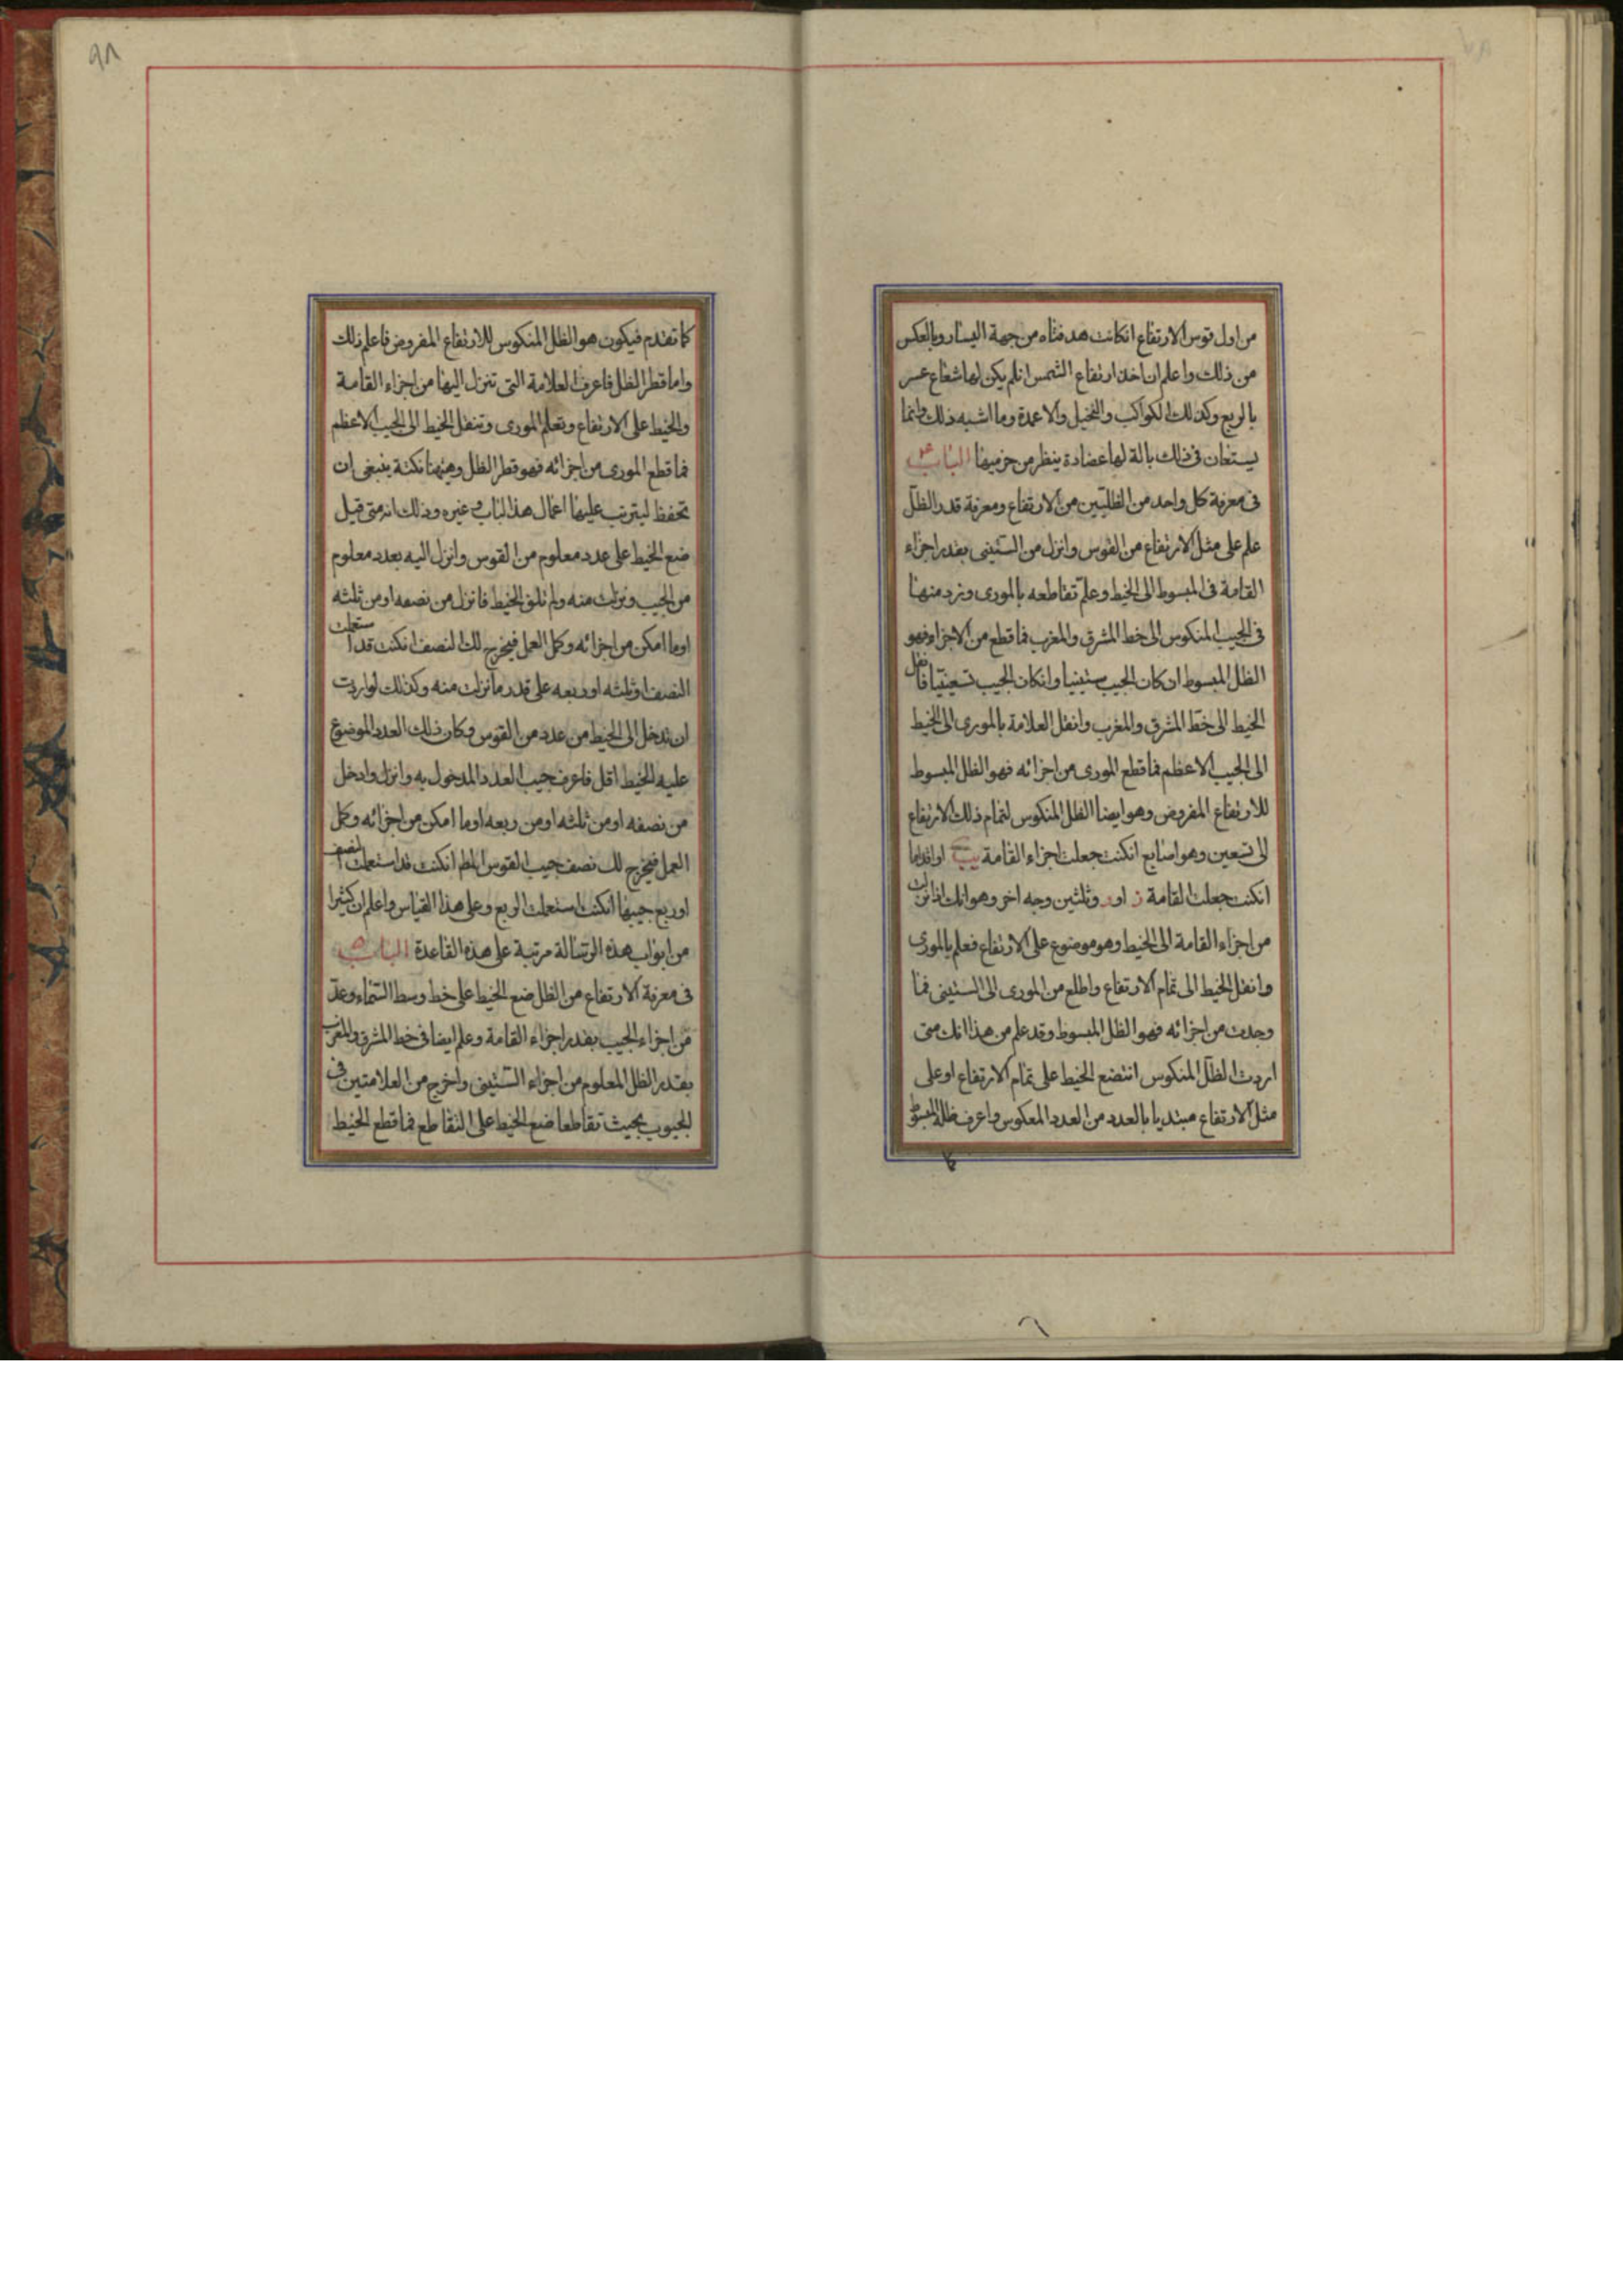 من اول قوس الارتفاع انكانت هدفتاه من جهة اليسار وبالعكس
من ذلك واعلم ان اخذ ارتفاع الشمس انلم يكن لها شعاع عسر
بالربع وكذلك الكواكب والنخيل والاعمدة وما اشبه ذلك وانما
يستعان فى ذلك بالة لها عضادة ينظر من خرميها الباب
فى معرفة كل واحد من الظلين من الارتفاع ومعرفة قدر الظل
علم على مثل الارتفاع من القوس وانزل من الستينى بقدر اجزاء
القامة فى المبسوط الى الخيط وعلم تقاطعه بالمورى ونزد منها
فى الجيب المنكوس الى خط المشرق والمغرب فما قطع من الاجزاء فهو
الظل المبسوط ان كان الجيب ستينيا وانكان الجيب تسعينيا فانقل
الخيط الى خط المشرق والمغرب وانقل العلامة بالمورى الى الخيط
الى الجيب الاعظم فما قطع المورى من اجزائه فهو الظل المبسوط
للارتفاع المفروض وهو ايضا الظل المنكوس لتمام ذلك الارتفاع
الى تسعين وهو اصابع انكنت جعلت اجزاء القامة يب او اقداما
انكنت جعلت القامة ز او و وثلثين وجه اخر وهو انك اذا نزلت
من اجزاء القامة الى الخيط وهو موضوع على الارتفاع فعلم بالمورى
وانقل الخيط الى تمام الارتفاع واطلع من المورى الى الستينى فما
وجدت من اجزائه فهو الظل المبسوط وقد علم من هذا انك متى
اردت الظل المنكوس انتضع الخيط على تمام الارتفاع او على
مثل الارتفاع مبتديا بالعدد من العدد المعكوس واعرف ظله المبسوط
٩٨
كما تقدم فيكون هو الظل المنكوس للارتفاع المفروض فاعلم ذلك
واما قطر الظل فاعرف العلامة التى تنزل اليها من اجزاء القامة
والخيط على الارتفاع وتعلم المورى وتنقل الخيط الى الجيب الاعظم
فما قطع المورى من اجزائه فهو قطر الظل وههنا نكتة ينبغى ان
تحفظ ليترتب عليها اعمال هذا الباب وغيره وذلك انه متى قيل
ضع الخيط على عدد معلوم من القوس وانزل اليه بعدد معلوم
من الجيب ونزلت منه ولم تلق الخيط فانزل من نصفه او من ثلثه
او ما امكن من اجزائه وكمل العمل فيخرج لك النصف انكنت قد استعملت
النصف او ثلثه او ربعه على قدر ما نزلت منه وكذلك لو اردت
ان تدخل الى الخيط من عدد من القوس وكان ذلك العدد الموضوع
عليه الخيط اقل فاعرف جيب العدد المدخول به وانزل وادخل
من نصفه او من ثلثه او من ربعه او ما امكن من اجزائه وكمل
العمل فيخرج لك نصف جيب القوس المط انكنت قد استعملت النصف
او ربع جيبها انكنت استعملت الربع وعلى هذا القياس واعلم ان كثيرا
من ابواب هذه الرسالة مرتبة على هذه القاعدة الباب
فى معرفة الارتفاع من الظل ضع الخيط على خط وسط السماء وعد
من اجزاء الجيب بقدر اجزاء القامة وعلم ايضا فى خط المشرق والمغرب
بقدر الظل المعلوم من اجزاء الستينى واخرج من العلامتين فى
الجيوب بحيث تقاطعا ضع الخيط على التقاطع فما قطع الخيط